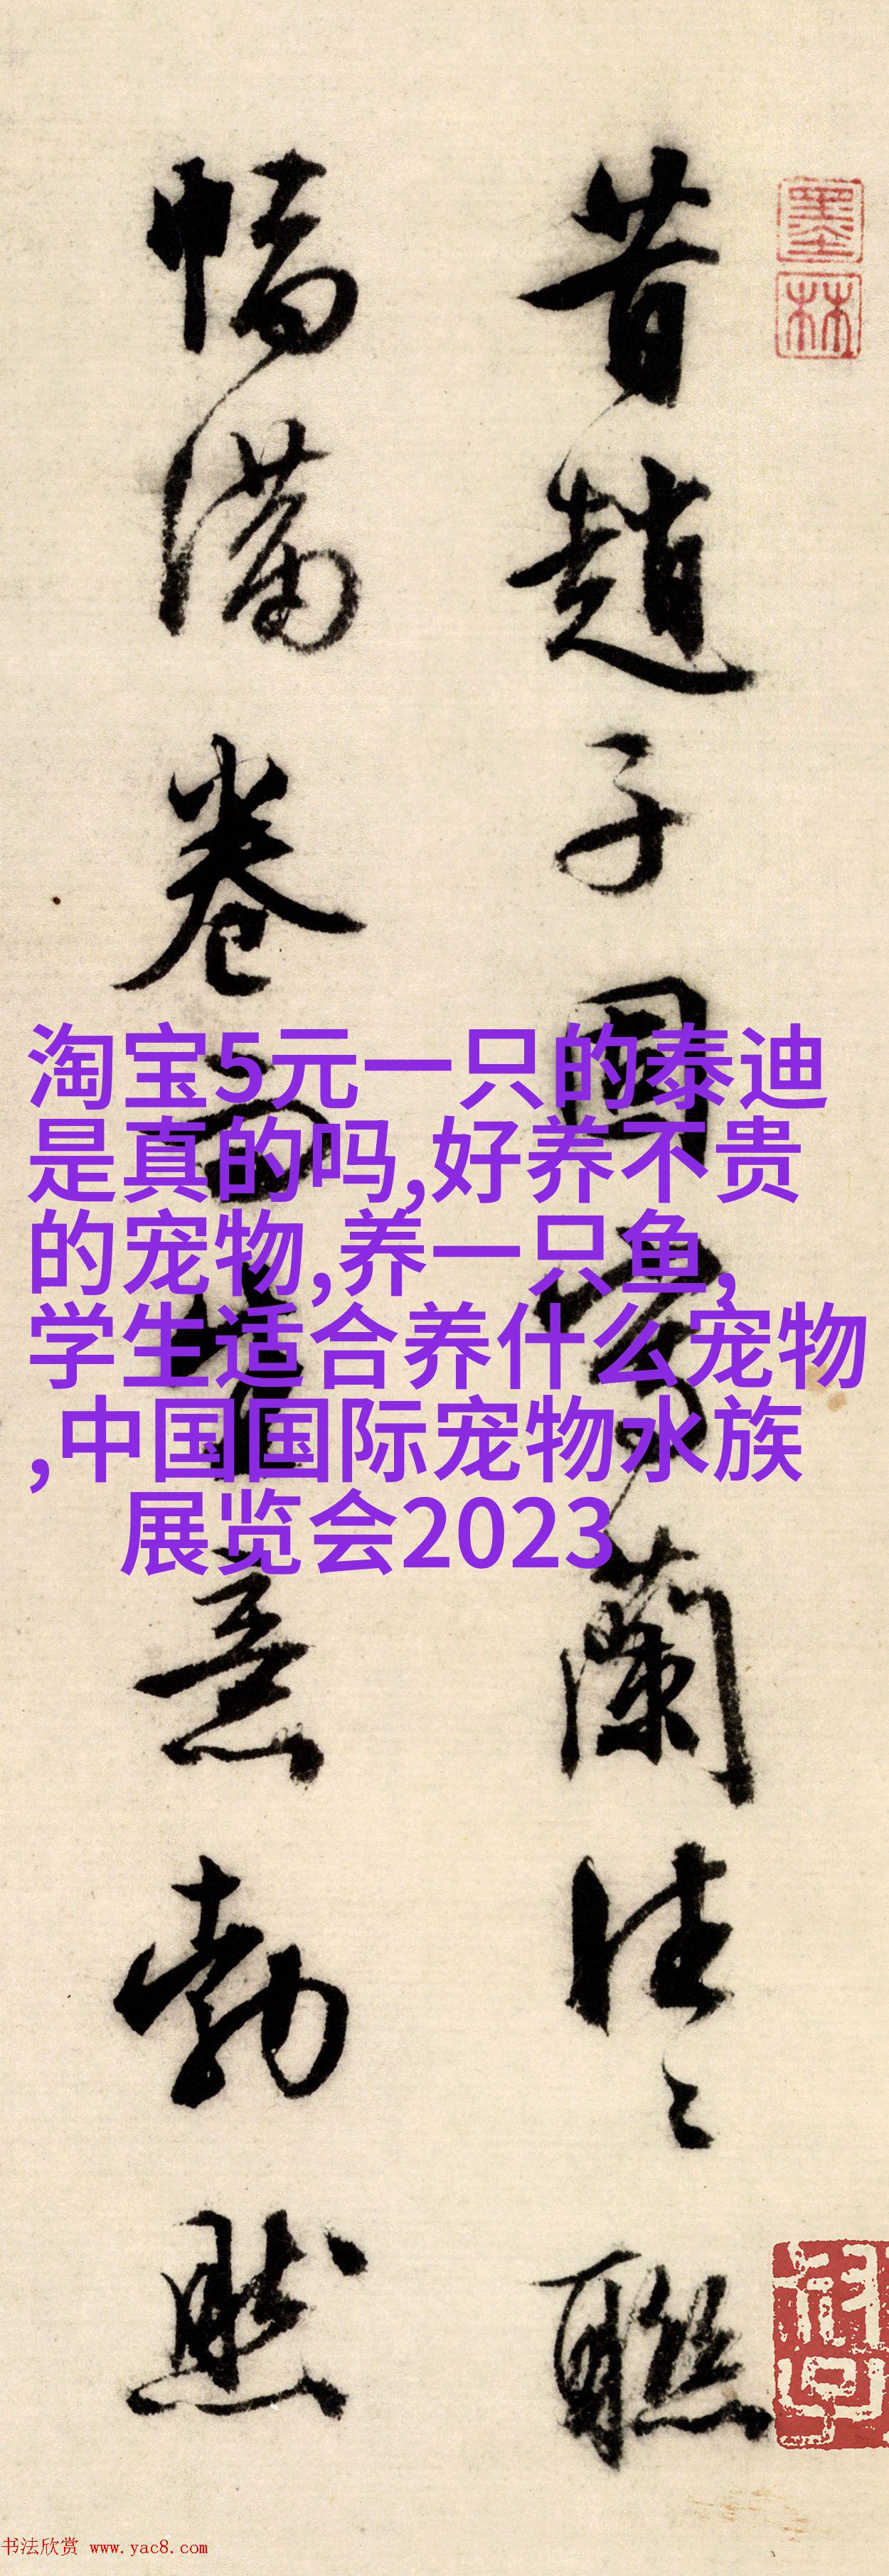 昔趙子固寫蘭往〻聯
幅滿卷而生意勃然
墨林
淘宝5元一只的泰迪
是真的吗,好养不贵
的宠物,养一只鱼,
学生适合养什么宠物
,中国国际宠物水族
展览会2023
书法欣赏 www.yac8.com